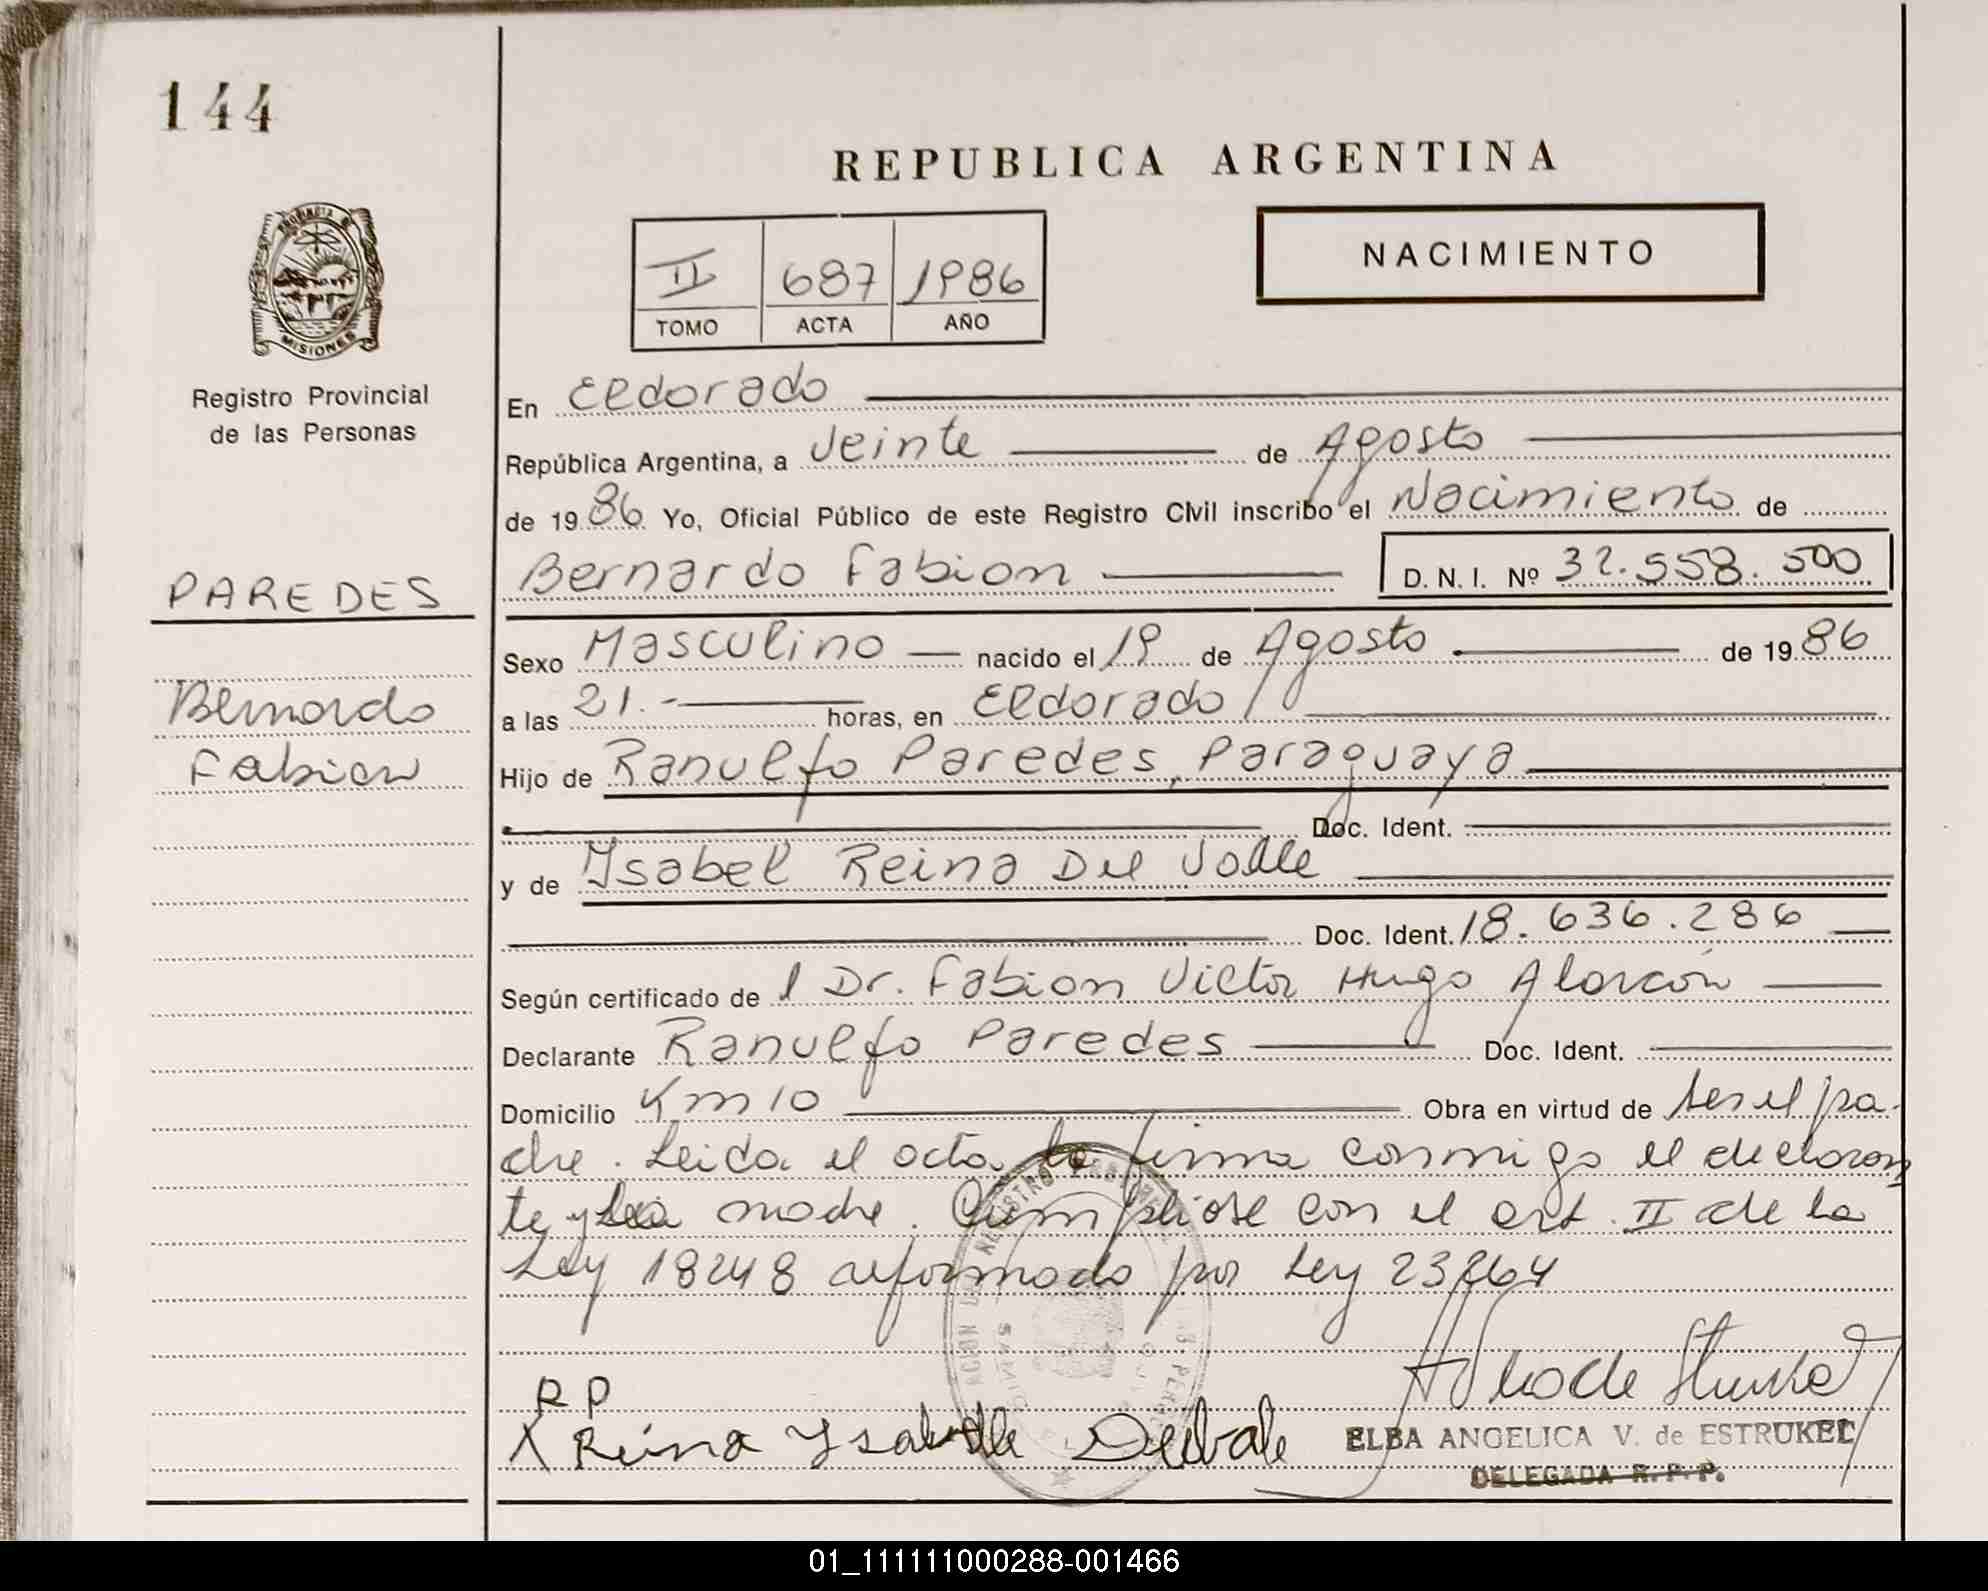 144
REPUBLICA ARGENTINA
II 687 1986
TOMO ACTA AÑO
NACIMIENTO
PROVINCIA DE
MISIONES
Registro Provincial
de las Personas
En Eldorado
República Argentina, a Veinte de Agosto
de 1986 Yo, Oficial Público de este Registro Civil inscribo el Nacimiento de
PAREDES
Bernardo Fabian D. N. I. Nº 32.558.500
Sexo Masculino nacido el 19 de Agosto de 1986
Bernardo
Fabian
a las 21.- horas, en Eldorado
Hijo de Ranulfo Paredes, Paraguaya
Doc. Ident.
y de Ysabel Reina Del Valle
Doc. Ident. 18.636.286
Según certificado de l Dr. Fabian Victor Hugo Alarcón
Declarante Ranulfo Paredes Doc. Ident.
Domicilio Km 10 Obra en virtud de ser el pa-
dre. Leida el acta la firma conmigo el declaran
te y la madre. Cumpliose con el art. II de la
Ley 18248 reformado por Ley 23264
R P
X Reina Ysabelle Delvale
ELBA ANGELICA V. de ESTRUKEL
DELEGADA R. P. P.
01_111111000288-001466